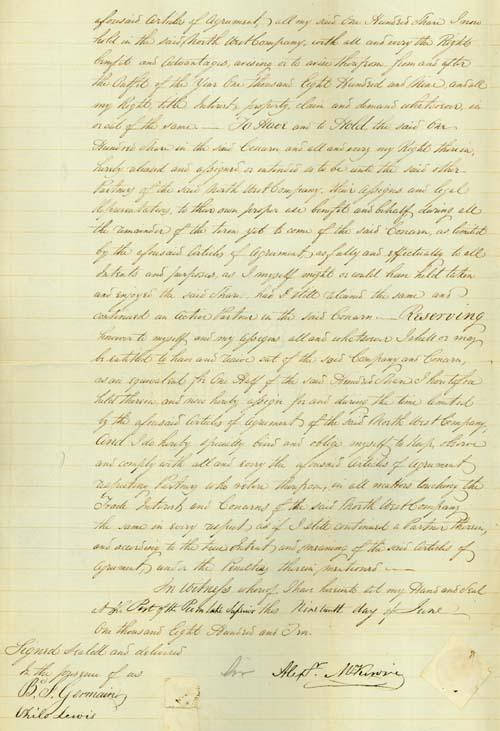 aforesaid Articles of Agreement, all my said One Hundred Share I now
hold in the said North West Company, with all and every the Rights
benefit and advantages, arising or to arise therefrom, from and after
the Outfit of the Year One Thousand Eight Hundred and Nine and all
my Right title Interest, property, claim and demand whatsoever, in
or out of the same — To Have and to Hold, the said One
Hundred share in the said Concern and all and every my Right therein,
hereby released and assigned or intended so to be unto the said other
Partners of the said North West Company, their assigns and legal
Representatives, to their own proper use benefit and behalf, during all
the remainder of the term yet to come of the said Concern, as limited
by the aforesaid Articles of Agreement, as fully and effectually to all
Intents and purposes, as I myself might or could have held taken
and enjoyed the said Share, had I still retained the same and
continued an active Partner in the said Concern — Reserving
however to myself and my assigns all and whatsoever I shall or may
be entitled to have and receive out of the said Company and Concern,
as an equivalent for One Half of the said Hundred Share I heretofore
held therein and now hereby assign for and during the time limited
by the aforesaid Articles of Agreement of the said North West Company,
And I do hereby specially bind and oblige myself to keep, observe
and comply with all and every the aforesaid Articles of Agreement
respecting Partners who retire therefrom, in all matters touching the
Trade Interest and Concerns of the said North West Company
the same in every respect, as if I still continued a Partner therein,
and according to the true Intent and meaning of the said Articles of
Agreement, under the Penalties therein mentioned —
In Witness whereof I have hereunto set my Hand and Seal
At the Post of the Lake Superior this Nineteenth day of June
One thousand Eight Hundred and Ten.
Signed Sealed and delivered
In the presence of us
Alexr. McKenzie
B. J. Germain
Philo Lewis